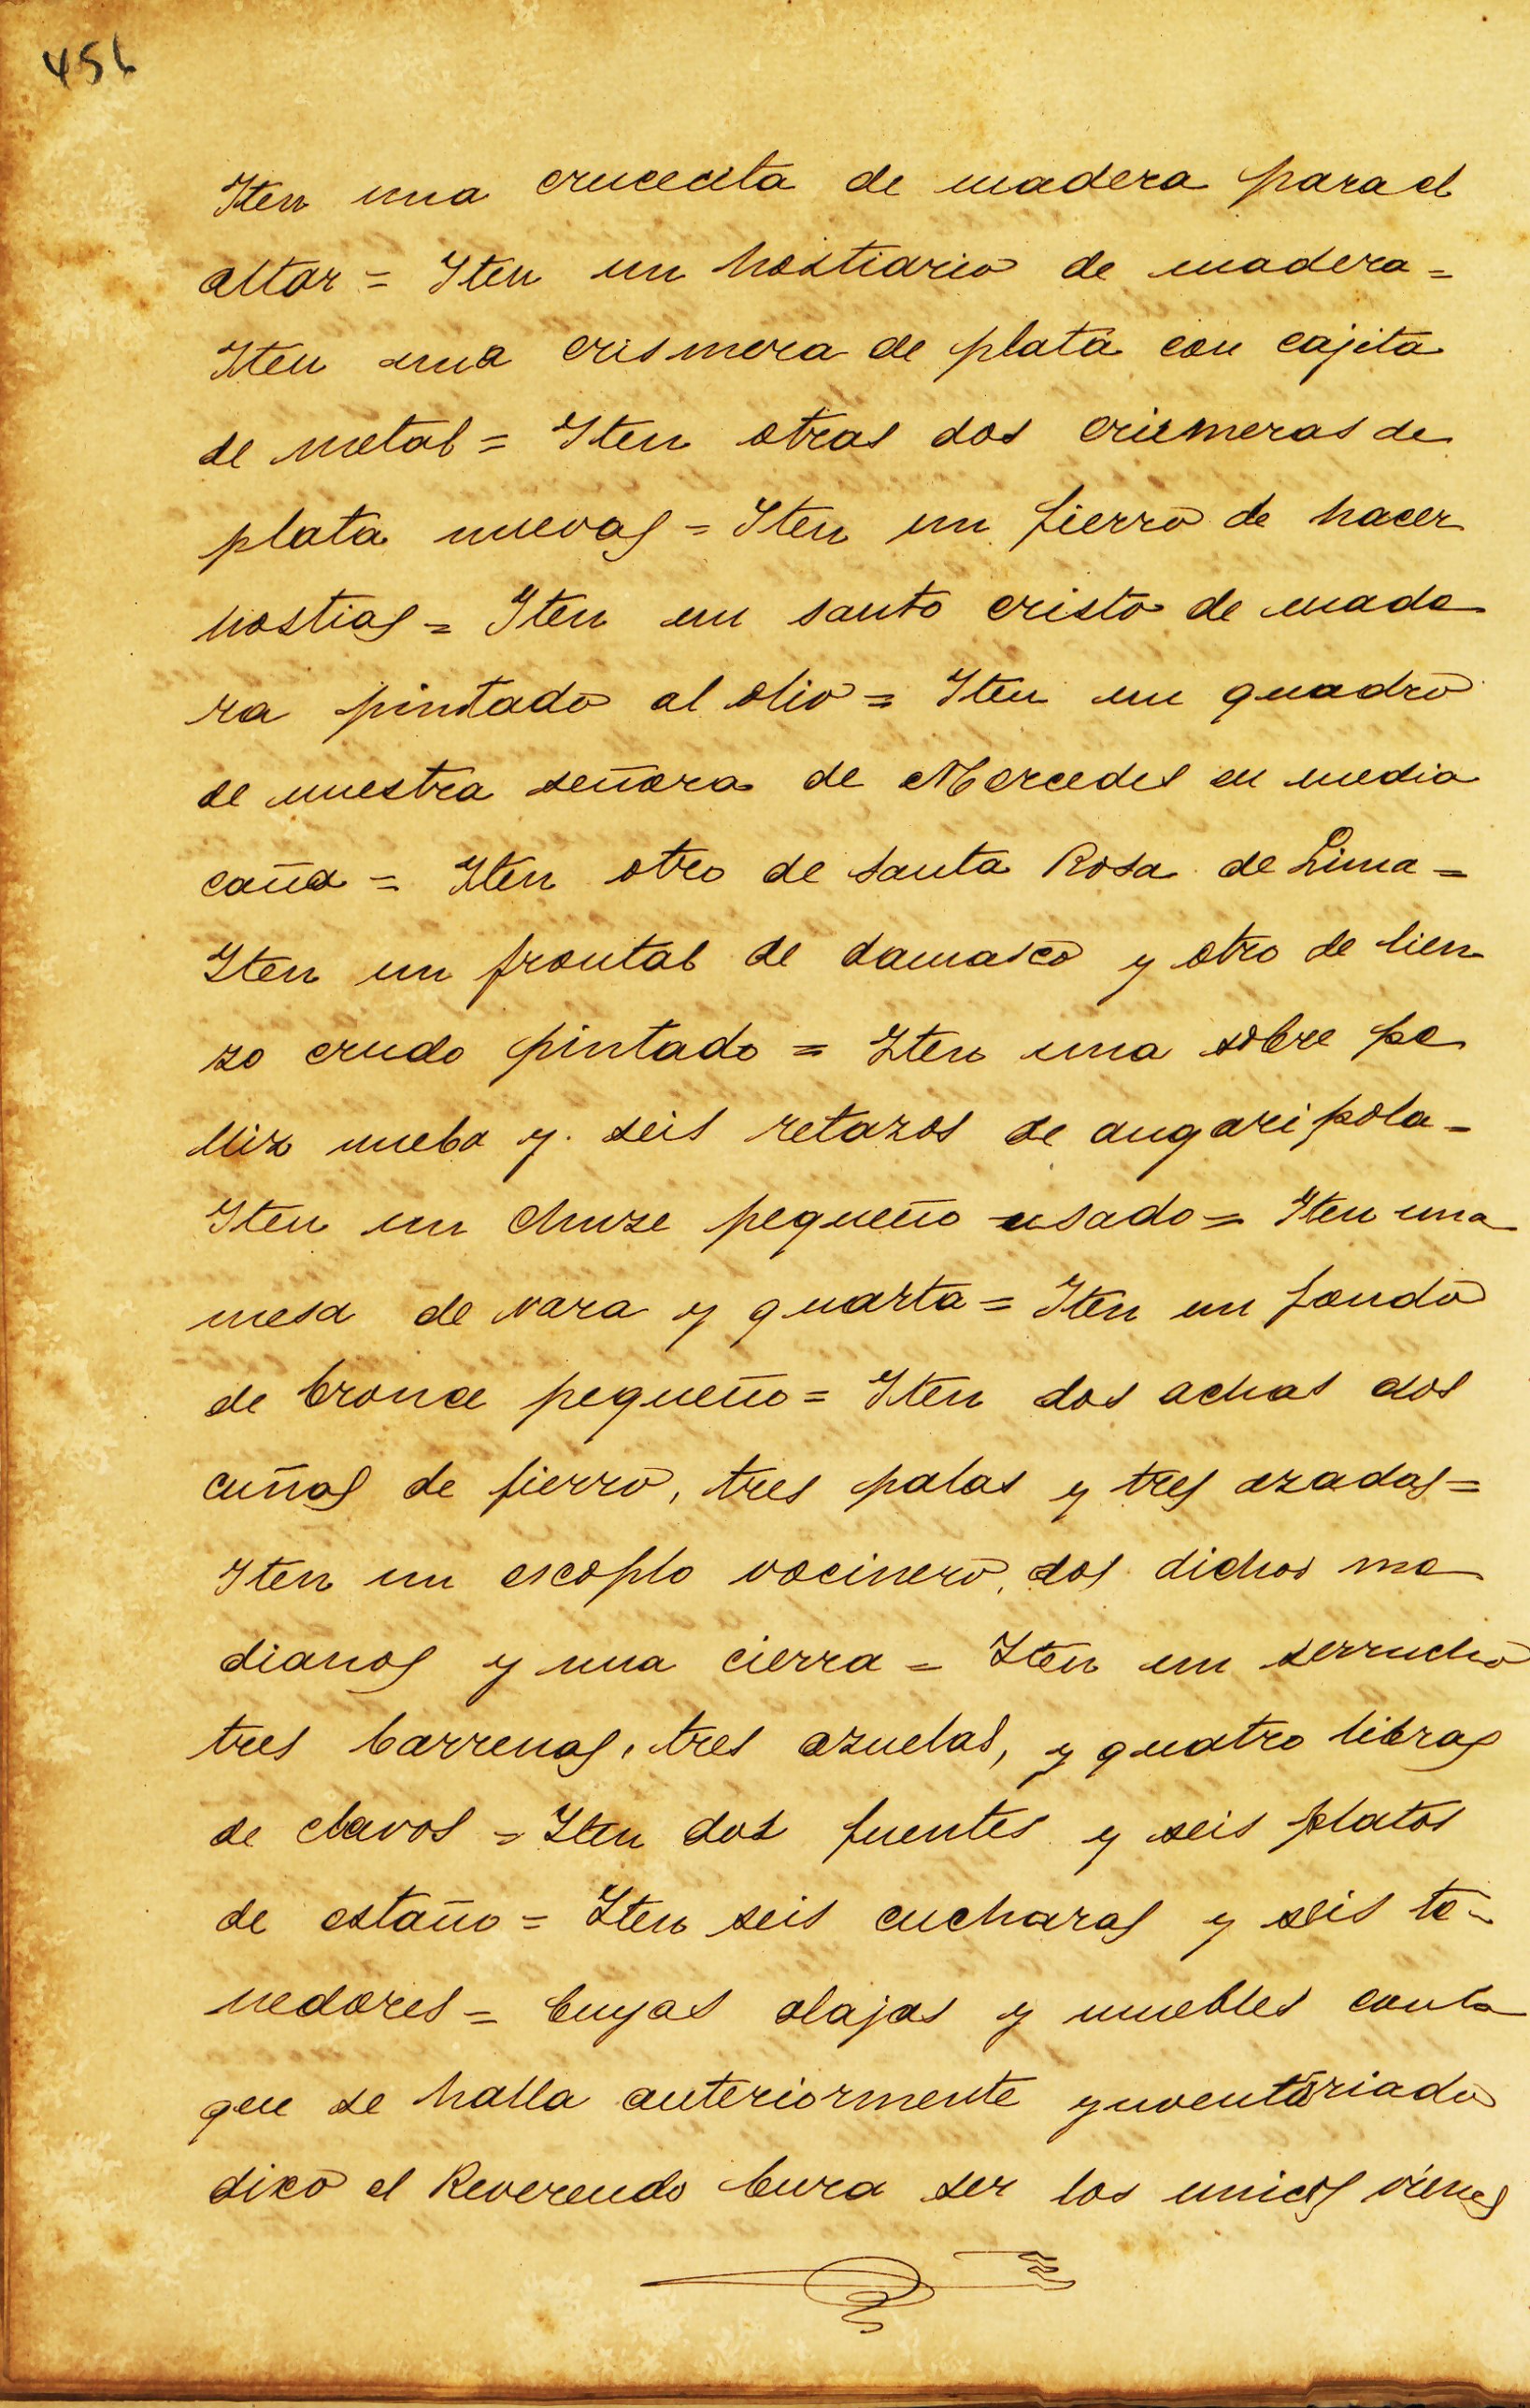 456
Iten una crucecita de madera para el
altar = Iten un hostiario de madera =
Iten una crismera de plata con cajita
de metal = Iten otras dos crismeras de
plata nuevas = Iten un fierro de hacer
hostias = Iten un santo cristo de made
ra pintado al olio = Iten un quadro
de nuestra señora de Mercedes en media
caña = Iten otro de santa Rosa de Lima =
Iten un frontal de damasco y otro de lien
zo crudo pintado = Iten una sobre pe
lliz nueba y seis retazos de angaripola =
Iten un chuze pequeño usado = Iten una
mesa de vara y quarta = Iten un fondo
de bronce pequeño = Iten dos achas dos
cuñas de fierro, tres palas y tres azadas =
Iten un escoplo vocinero, dos dichos me
dianos y una cierra = Iten un serrucho
tres barrenas, tres azuelas, y quatro libras
de clavos = Iten dos fuentes y seis platos
de estaño = Iten seis cucharas y seis te-
nedores = Cuyas alajas y muebles con lo
que se halla anteriormente ynventariado
dixo el Reverendo Cura ser los unicos vienes